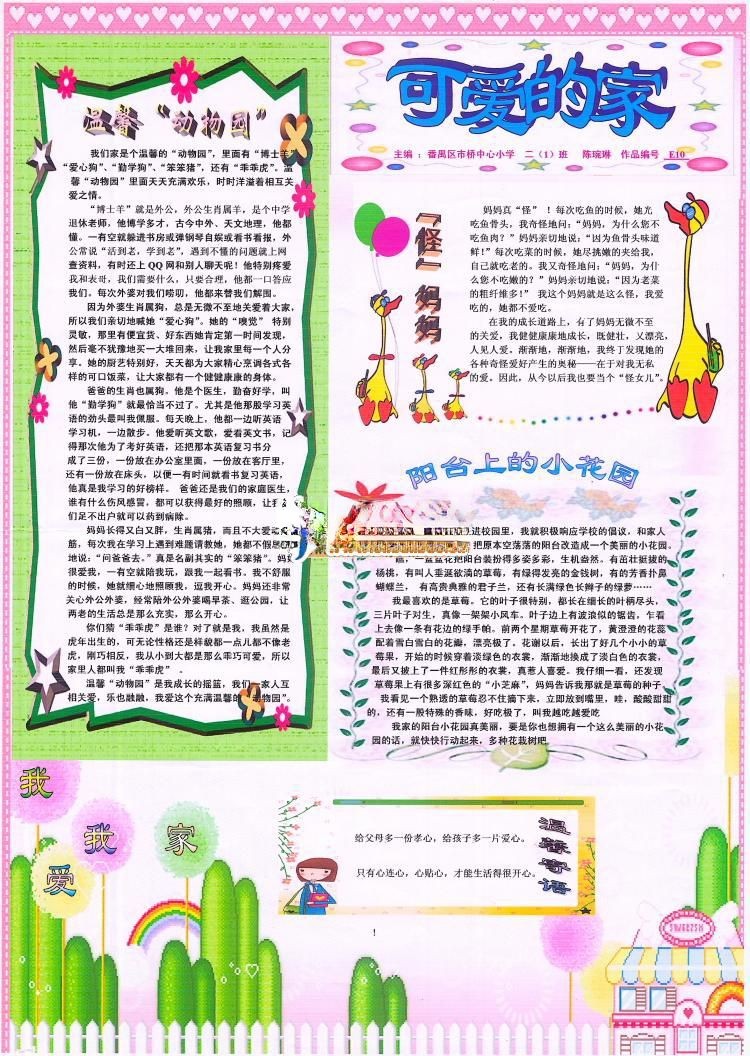 可爱的家
主编 ：番禺区市桥中心小学 二（1）班 陈琬琳 作品编号 E10
温馨“动物园”
我们家是个温馨的“动物园”，里面有“博士羊”
“爱心狗”、“勤学狗”、“笨笨猪”，还有“乖乖虎”。温
馨“动物园”里面天天充满欢乐，时时洋溢着相互关
爱之情。
“博士羊”就是外公，外公生肖属羊，是个中学
退休老师，他博学多才，古今中外、天文地理，他都
懂。一有空就躲进书房或弹钢琴自娱或看书看报，外
公常说“活到老，学到老”，遇到不懂的问题就上网
查资料，有时还上QQ网和别人聊天呢！他特别疼爱
我和表哥，我们需要什么，只要合理，他都一口答应
我们。每次外婆对我们唠叨，他都来替我们解围。
因为外婆生肖属狗，总是无微不至地关爱着大家，
所以我们亲切地喊她“爱心狗”。她的“嗅觉” 特别
灵敏，那里有便宜货、好东西她肯定第一时间发现，
然后毫不犹豫地买一大堆回来，让我家里每一个人分
享。她的厨艺特别好，天天都为大家精心烹调各式各
样的可口饭菜，让大家都有一个健健康康的身体。
爸爸的生肖也属狗。他是个医生，勤奋好学，叫
他“勤学狗”就最恰当不过了。尤其是他那股学习英
语的劲头最叫我佩服。每天晚上，他都一边听英语
学习机，一边散步。他爱听英文歌，爱看英文书，记
得那次他为了考好英语，还把那本英语复习书分
成了三份，一份放在办公室里面，一份放在客厅里，
还有一份放在床头，以便一有时间就看书复习英语，
他真是我学习的好榜样。 爸爸还是我们的家庭医生，
谁有什么伤风感冒，都可以获得最好的照顾，让我
们足不出户就可以药到病除。
妈妈长得又白又胖，生肖属猪，而且不大爱动
筋，每次我在学习上遇到难题请教她，她都不假思
地说：“问爸爸去。”真是名副其实的“笨笨猪”。妈妈
很爱我，一有空就陪我玩，跟我一起看书。我不舒服
的时候，她就细心地照顾我，逗我开心。妈妈还非常
关心外公外婆，经常陪外公外婆喝早茶、逛公园，让
两老的生活总是那么充实，那么开心。
你们猜“乖乖虎”是谁？对了就是我，我虽然是
虎年出生的，可无论性格还是样貌都一点儿都不像老
虎，刚巧相反，我从小到大都是那么乖巧可爱，所以
家里人都叫我“乖乖虎” 。
温馨“动物园”是我成长的摇篮，我们一家人互
相关爱，乐也融融，我爱这个充满温馨的“动物园”。
「怪」妈妈
妈妈真“怪” ！每次吃鱼的时候，她光
吃鱼骨头，我奇怪地问：“妈妈，为什么您不
吃鱼肉？”妈妈亲切地说：“因为鱼骨头味道
鲜！”每次吃菜的时候，她尽挑嫩的夹给我，
自己就吃老的。我又奇怪地问：“妈妈，为什
么您不吃嫩的？”妈妈亲切地说：“因为老菜
的粗纤维多！” 我这个妈妈就是这么怪，我爱
吃的，她都不爱吃。
在我的成长道路上，有了妈妈无微不至
的关爱，我健健康康地成长，既健壮，又漂亮，
人见人爱。渐渐地，渐渐地，我终于发现她的
各种奇怪爱好产生的奥秘——在于对我无私
的爱。因此，从今以后我也要当个“怪女儿”。
阳台上的小花园
进校园里，我就积极响应学校的倡议，和家人
把原本空荡荡的阳台改造成一个美丽的小花园。
盆盆花把阳台装扮得多姿多彩，生机盎然。有茁壮挺拔的
杨桃，有叫人垂涎欲滴的草莓，有绿得发亮的金钱树，有的芳香扑鼻
蝴蝶兰， 有高贵典雅的君子兰，还有长满绿色长辫子的绿萝……
我最喜欢的是草莓。它的叶子很特别，都长在细长的叶柄尽头，
三片叶子对生，真像一架架小风车。叶子边上有波浪似的锯齿，乍看
上去像一条有花边的绿手帕。前两个星期草莓开花了，黄澄澄的花蕊
配着雪白雪白的花瓣，漂亮极了。花谢以后，长出了好几个小小的草
莓果，开始的时候穿着淡绿色的衣裳，渐渐地换成了淡白色的衣裳，
最后又披上了一件红彤彤的衣裳，真惹人喜爱。我仔细一看，还发现
草莓果上有很多深红色的“小芝麻”，妈妈告诉我那就是草莓的种子。
我看见一个熟透的草莓忍不住摘下来，立即放到嘴里，哇，酸酸甜甜
的，还有一股特殊的香味，好吃极了，叫我越吃越爱吃
我家的阳台小花园真美丽，要是你也想拥有一个这么美丽的小花
园的话，就快快行动起来，多种花栽树吧
我
我
爱
家
温馨寄语
给父母多一份孝心，给孩子多一片爱心。
只有心连心，心贴心，才能生活得很开心。
！
SWEETSH